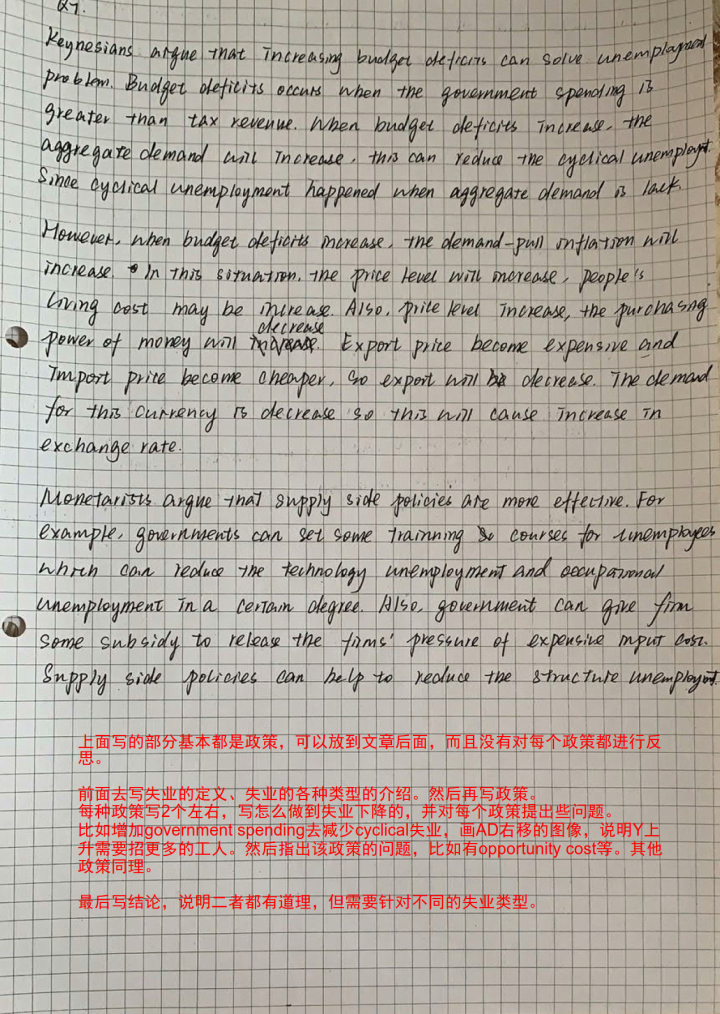 Q7.
Keynesians argue that increasing budget deficits can solve unemployment
problem. Budget deficits occurs when the government spending is
greater than tax revenue. When budget deficits increase, the
aggregate demand will increase, this can reduce the cyclical unemployt.
Since cyclical unemployment happened when aggregate demand is lack.
However, when budget deficits increase, the demand-pull inflation will
increase. In this situation, the price level will increase, people's
living cost may be increase. Also, price level increase, the purchasing
decrease
power of money will increase. Export price become expensive and
Import price become cheaper, so export will be decrease. The demand
for this currency is decrease so this will cause increase in
exchange rate.
Monetarists argue that supply side policies are more effective. For
example, governments can set some trainning courses for unemployees
which can reduce the technology unemployment and occupational
unemployment in a certain degree. Also, government can give firm
some subsidy to release the firms' pressure of expensive input cost.
Supply side policies can help to reduce the structure unemployt.
上面写的部分基本都是政策，可以放到文章后面，而且没有对每个政策都进行反
思。
前面去写失业的定义、失业的各种类型的介绍。然后再写政策。
每种政策写2个左右，写怎么做到失业下降的，并对每个政策提出些问题。
比如增加government spending去减少cyclical失业，画AD右移的图像，说明Y上
升需要招更多的工人。然后指出该政策的问题，比如有opportunity cost等。其他
政策同理。
最后写结论，说明二者都有道理，但需要针对不同的失业类型。